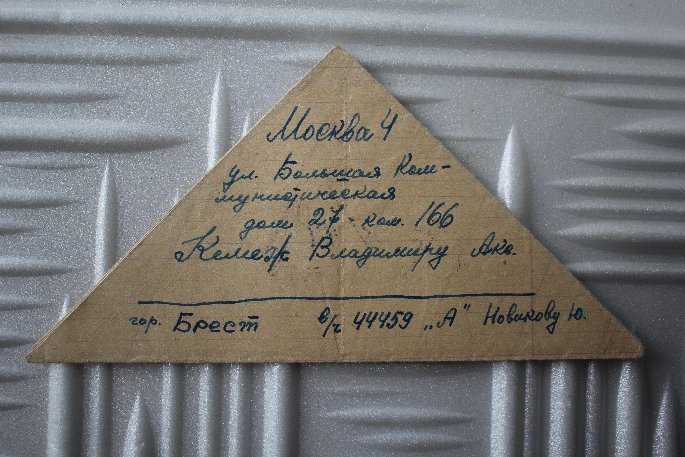 Москва 4
ул. Большая Ком-
мунистическая
дом 27 - ком. 166
Владимиру
гор. Брест в/ч 44459 „А" Новикову Ю.